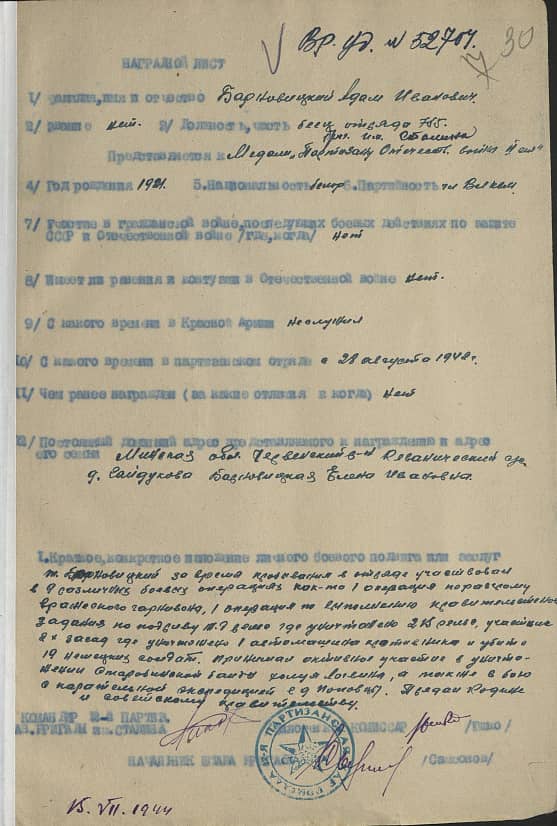 Вр. уд. № 52707.
30
НАГРАДНОЙ ЛИСТ
1/ Фамилия, имя и отчество Барновицкий Адам Иванович.
2/ Звание нет. 3/ Должность, часть боец отряда 755.
бриг. им. Сталина
Представляется к Медали "Партизану Отечеств. войны II ст"
4/ Год рождения 1921. 5. Национальность белор 6. Партийность чл Влксм.
7/ Участие в гражданской войне, последующих боевых действиях по защите
СССР и Отечественной войне /где, когда/ нет
8/ Имеет ли ранения и контузии в Отечественной войне нет.
9/ С какого времени в Красной Армии неслужил
10/ С какого времени в партизанском отряде с 28 августа 1942 г.
11/ Чем ранее награжден (за какие отличия и когда) нет
12/ Постоянный домашний адрес представляемого к награждению и адрес
его семьи Минская обл. Червенский р-н
д. Сайдукова Барновицкая Елена Ивановна.
1. Краткое, конкретное изложение личного боевого подвига или заслуг
т. Барновицкий за время пребывания в отряде участвовал
в 9 различных боевых операциях как-то 1 операция по разгрому
вражеского гарнизона, 1 операция по выполнению правительственного
задания по подрыву ж.д. где уничтожено рельс, участие
в засад где уничтожено 1 автомашина противника и убито
19 немецких солдат. Принимал активное участие в уничто-
жении банды, а также в бою
с карательной экспедицией в д Поповцы. Предан Родине
и советскому правительству.
КОМАНДИР 12-й ПАРТИЗ. КОМИССАР
КАВ. БРИГАДЫ им. СТАЛИНА
НАЧАЛЬНИК ШТАБА БРИГАДЫ
15.VII.1944